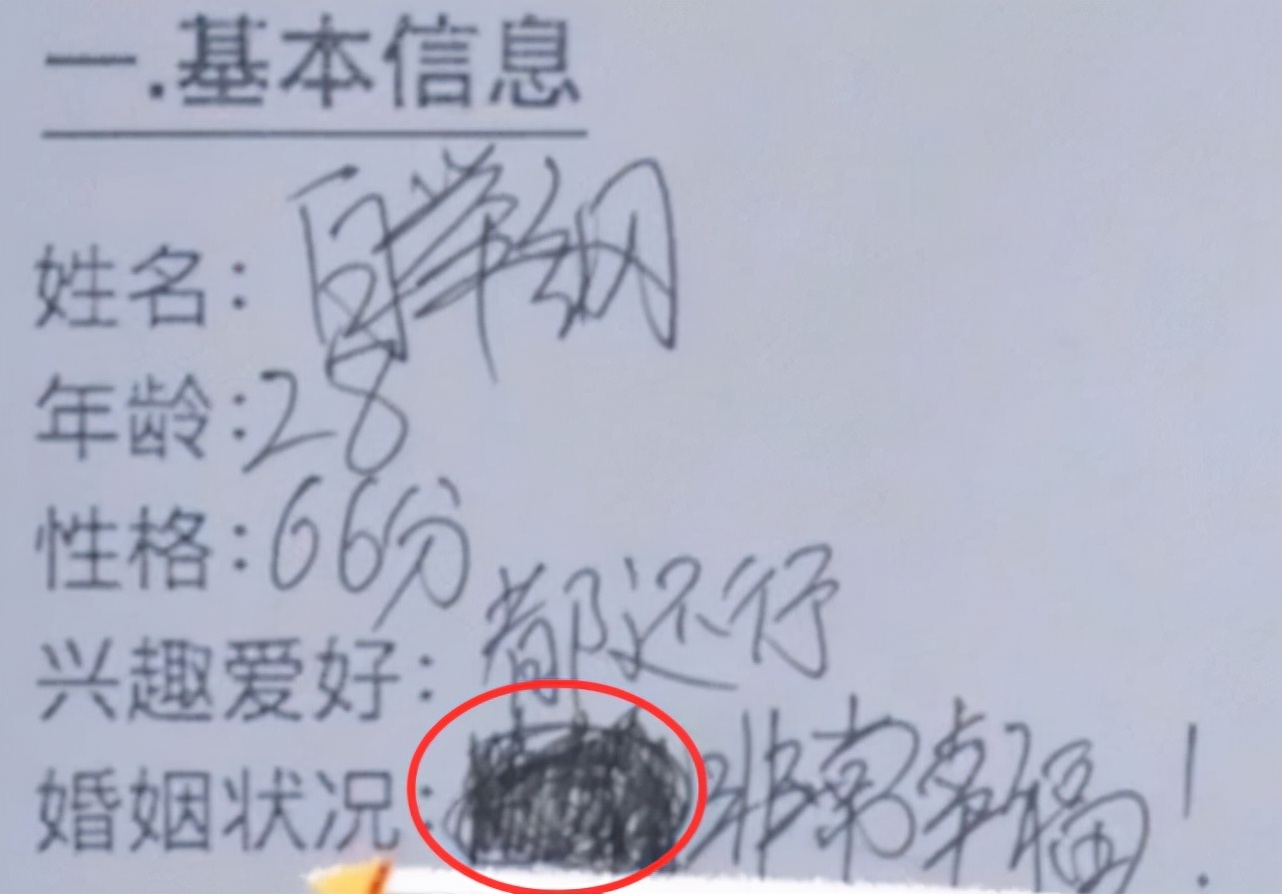 一.基本信息
姓名:白举纲
年龄:28
性格:66分
兴趣爱好:都还行
婚姻状况:非常幸福!